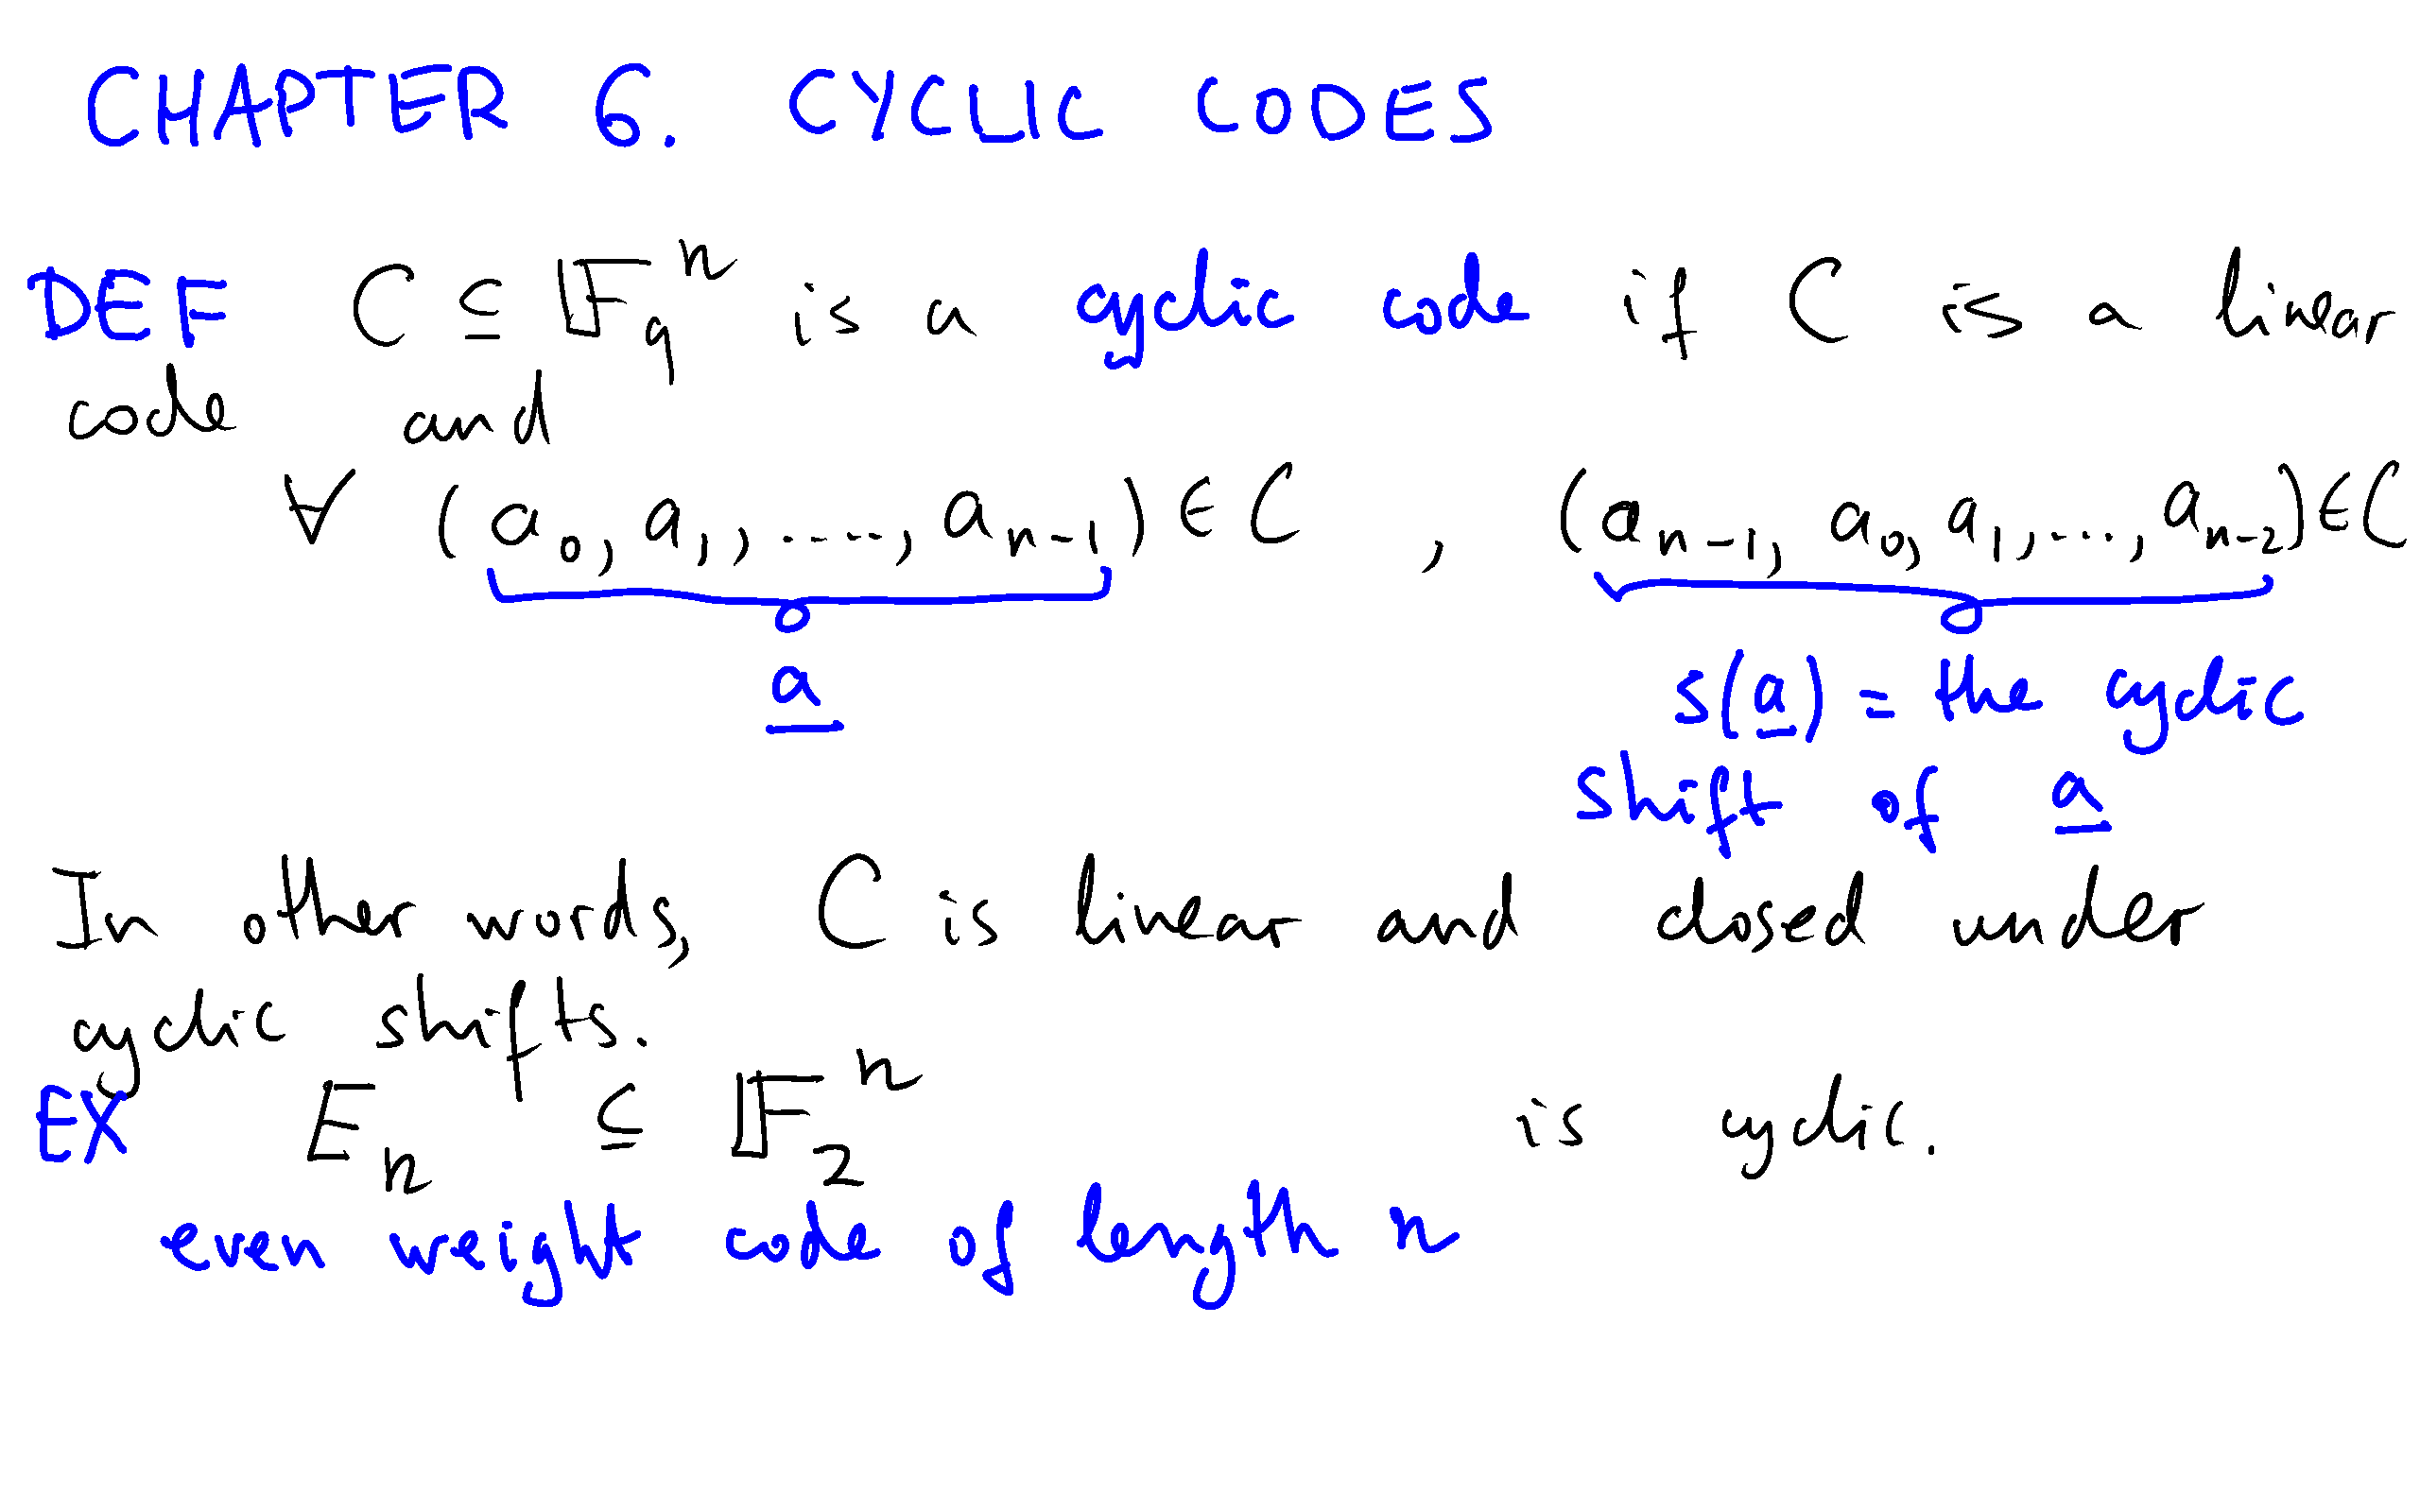 CHAPTER 6. CYCLIC CODES
DEF C ⊆ 𝔽_q^n is a cyclic code if C is a linear
code and
∀ (a_0, a_1, ....., a_{n-1}) ∈ C , (a_{n-1}, a_0, a_1, ..., a_{n-2}) ∈ C
a s(a) = the cyclic
shift of a
In other words, C is linear and closed under
cyclic shifts.
EX E_n ⊆ 𝔽_2^n is cyclic.
even weight code of length n